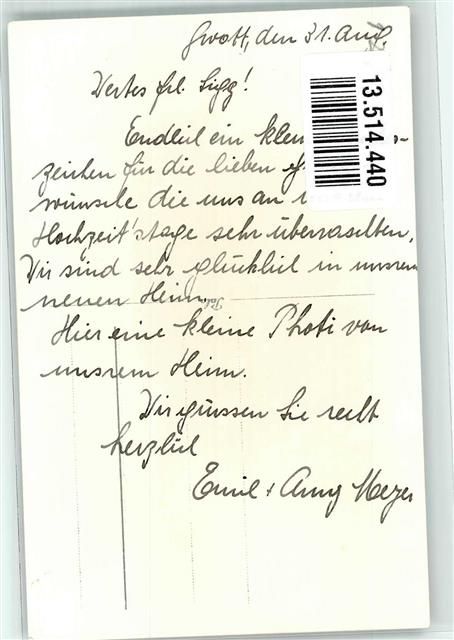 Gwatt, den 31. Aug.
Wertes frl. Sigg!
Endlich ein klein
zeichen für die lieben
wünsche die uns an
Hochzeitstage sehr überraschten.
Wir sind sehr glücklich in unsrem
neuen Heim.
Hier eine kleine Photi von
unsrem Heim.
Wir grüssen Sie recht
herzlich
Emil + Anny Meyer
13.514.440